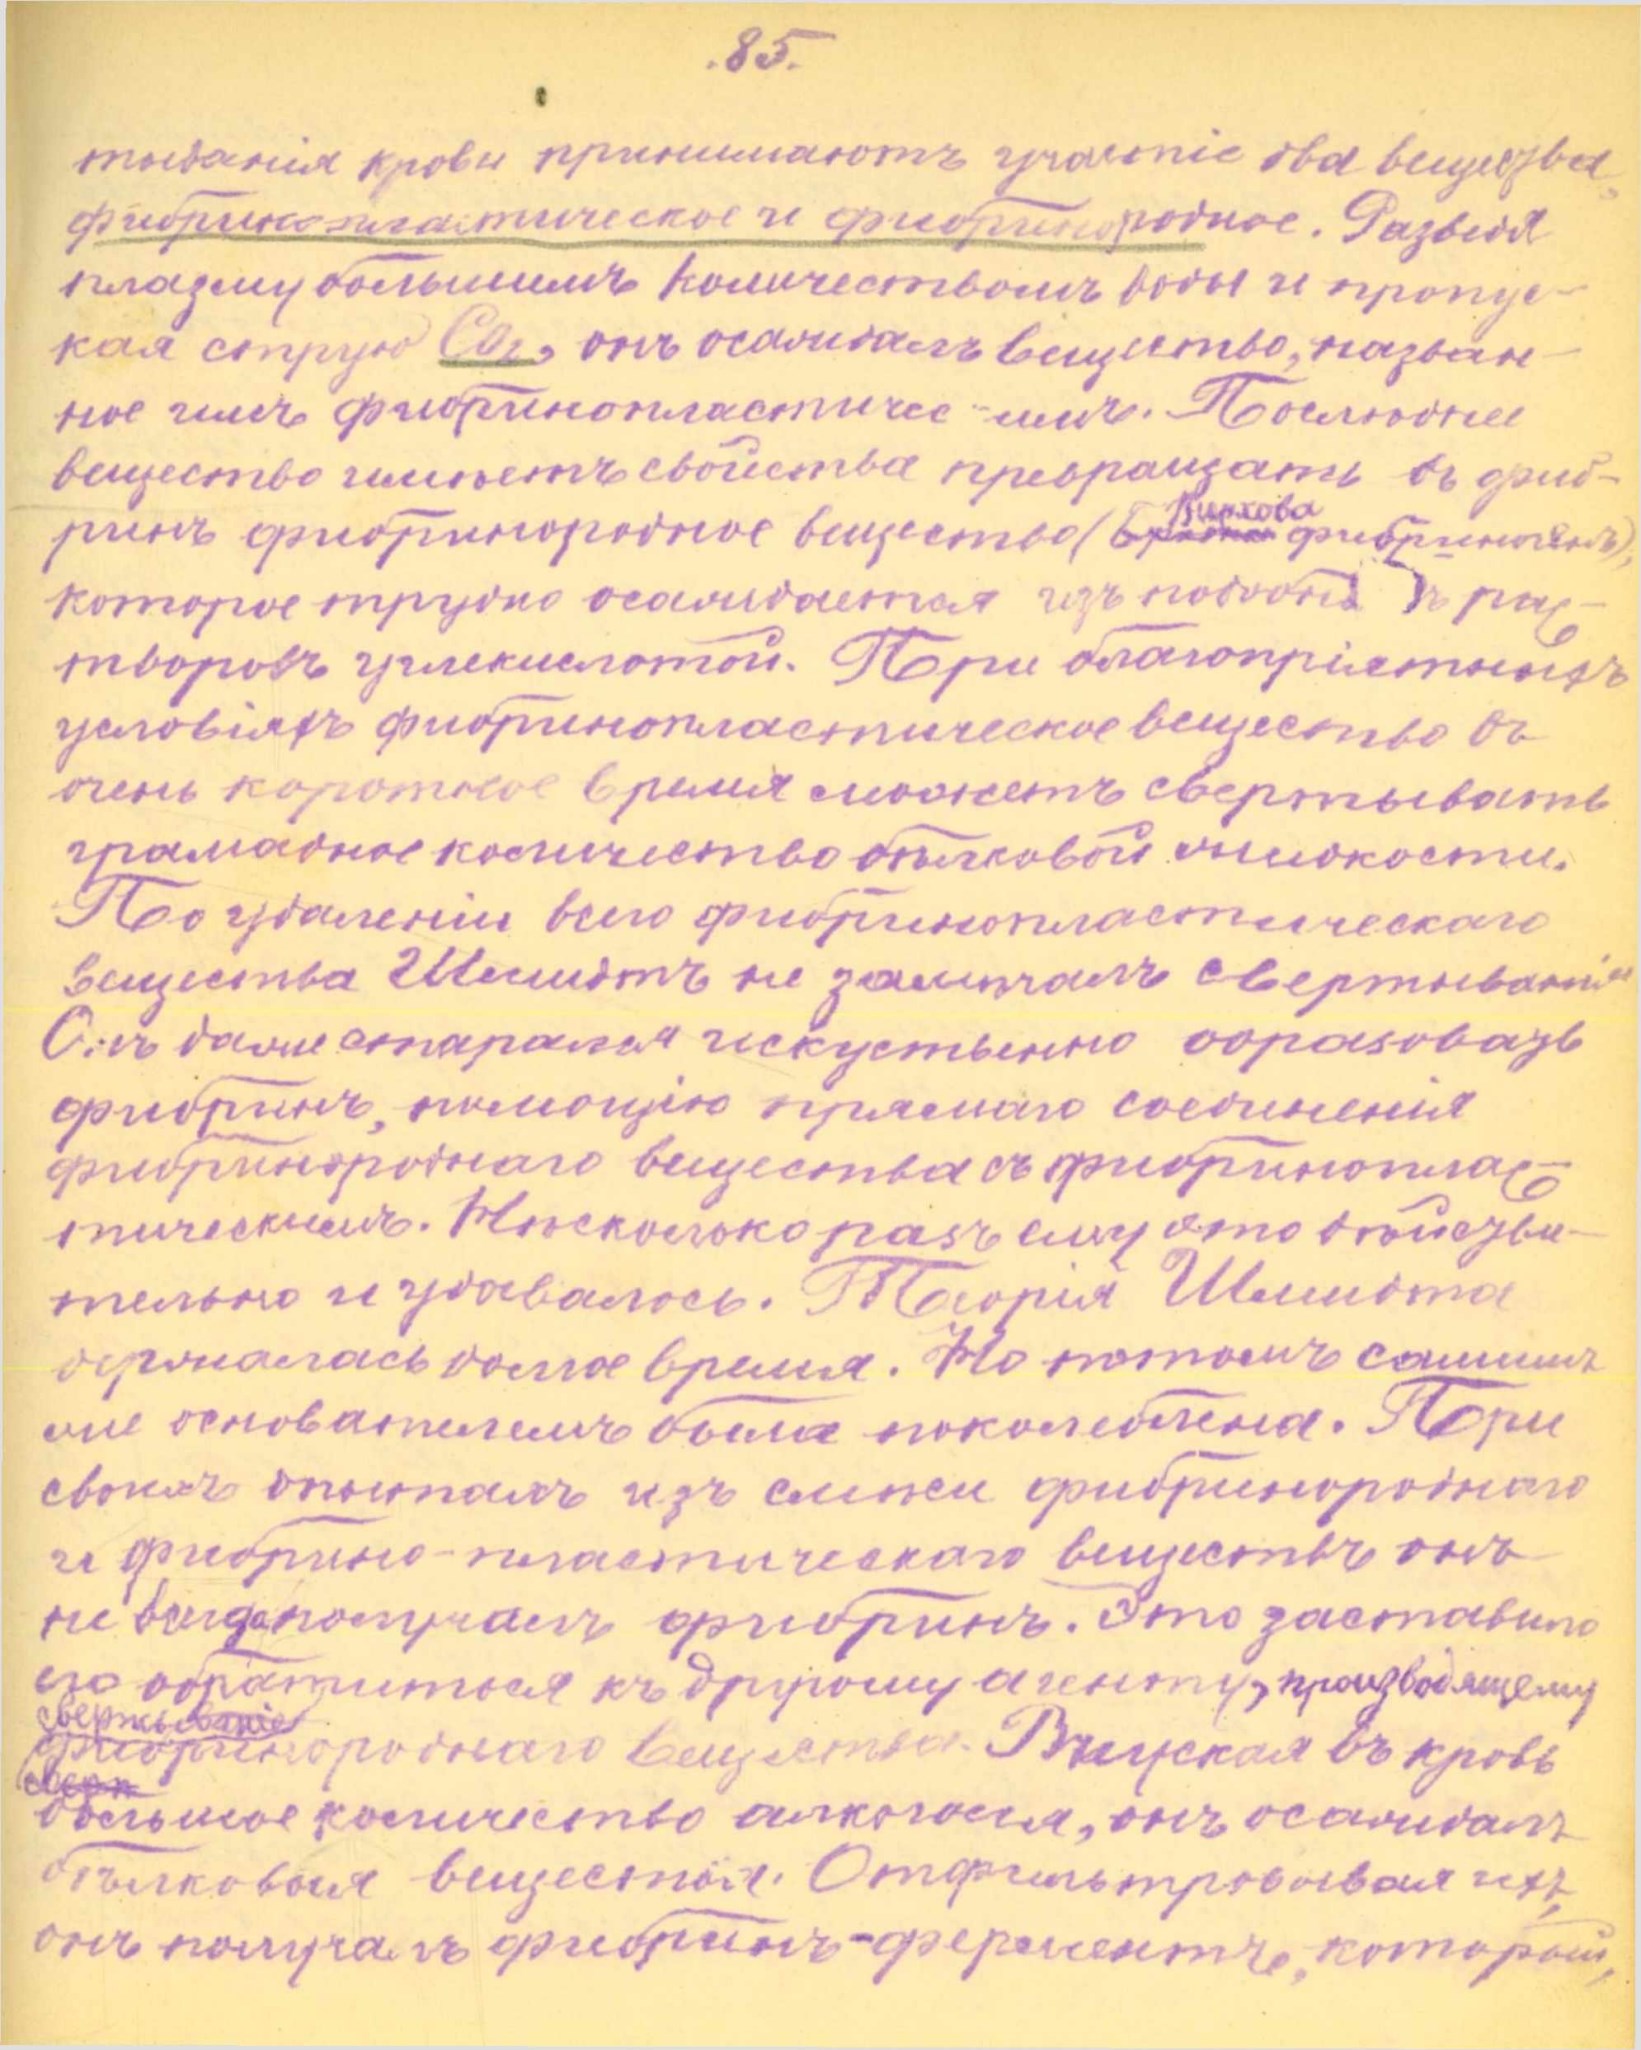 .85.
тыванія крови принимаютъ участіе два вещества,
фибринопластическое и фибринородное. Разведя
плазму большимъ количествомъ воды и пропус-
кая струю CO2, онъ осаждалъ вещество, назван-
ное имъ фибринопластичес-имъ. Послѣднее
вещество имѣетъ свойства превращать въ фиб-
ринъ фибринородное вещество (Вирхова фибриногенъ),
которое трудно осаждается изъ подобныхъ рас-
творовъ углекислотой. При благопріятныхъ
условіяхъ фибринопластическое вещество въ
очень короткое время можетъ свертывать
грамадное количество бѣлковой жидкости.
По удаленіи всего фибринопластическаго
вещества Шмидтъ не замѣчалъ свертыванія
Онъ даже старался искуственно образовать
фибринъ, помощію прямаго соединенія
фибринороднаго вещества съ фибринoплас-
тическимъ. Нѣсколько разъ ему это дѣйстви-
тельно и удавалось. Теорія Шмидта
держалась долгое время. Но потомъ самимъ
же основателемъ была поколеблена. При
своихъ опытахъ изъ смѣси фибринороднаго
и фибрино-пластическаго веществъ онъ
не всегда получалъ фибринъ. Это заставило
его обратиться къ другому агенту, производящему
свертываніе
фибринороднаго вещества. Впуская въ кровь
сверт
большое количество алкоголя, онъ осаждалъ
бѣлковыя вещества. Отфильтровывая ихъ,
онъ получалъ фибринъ-ферментъ, который,